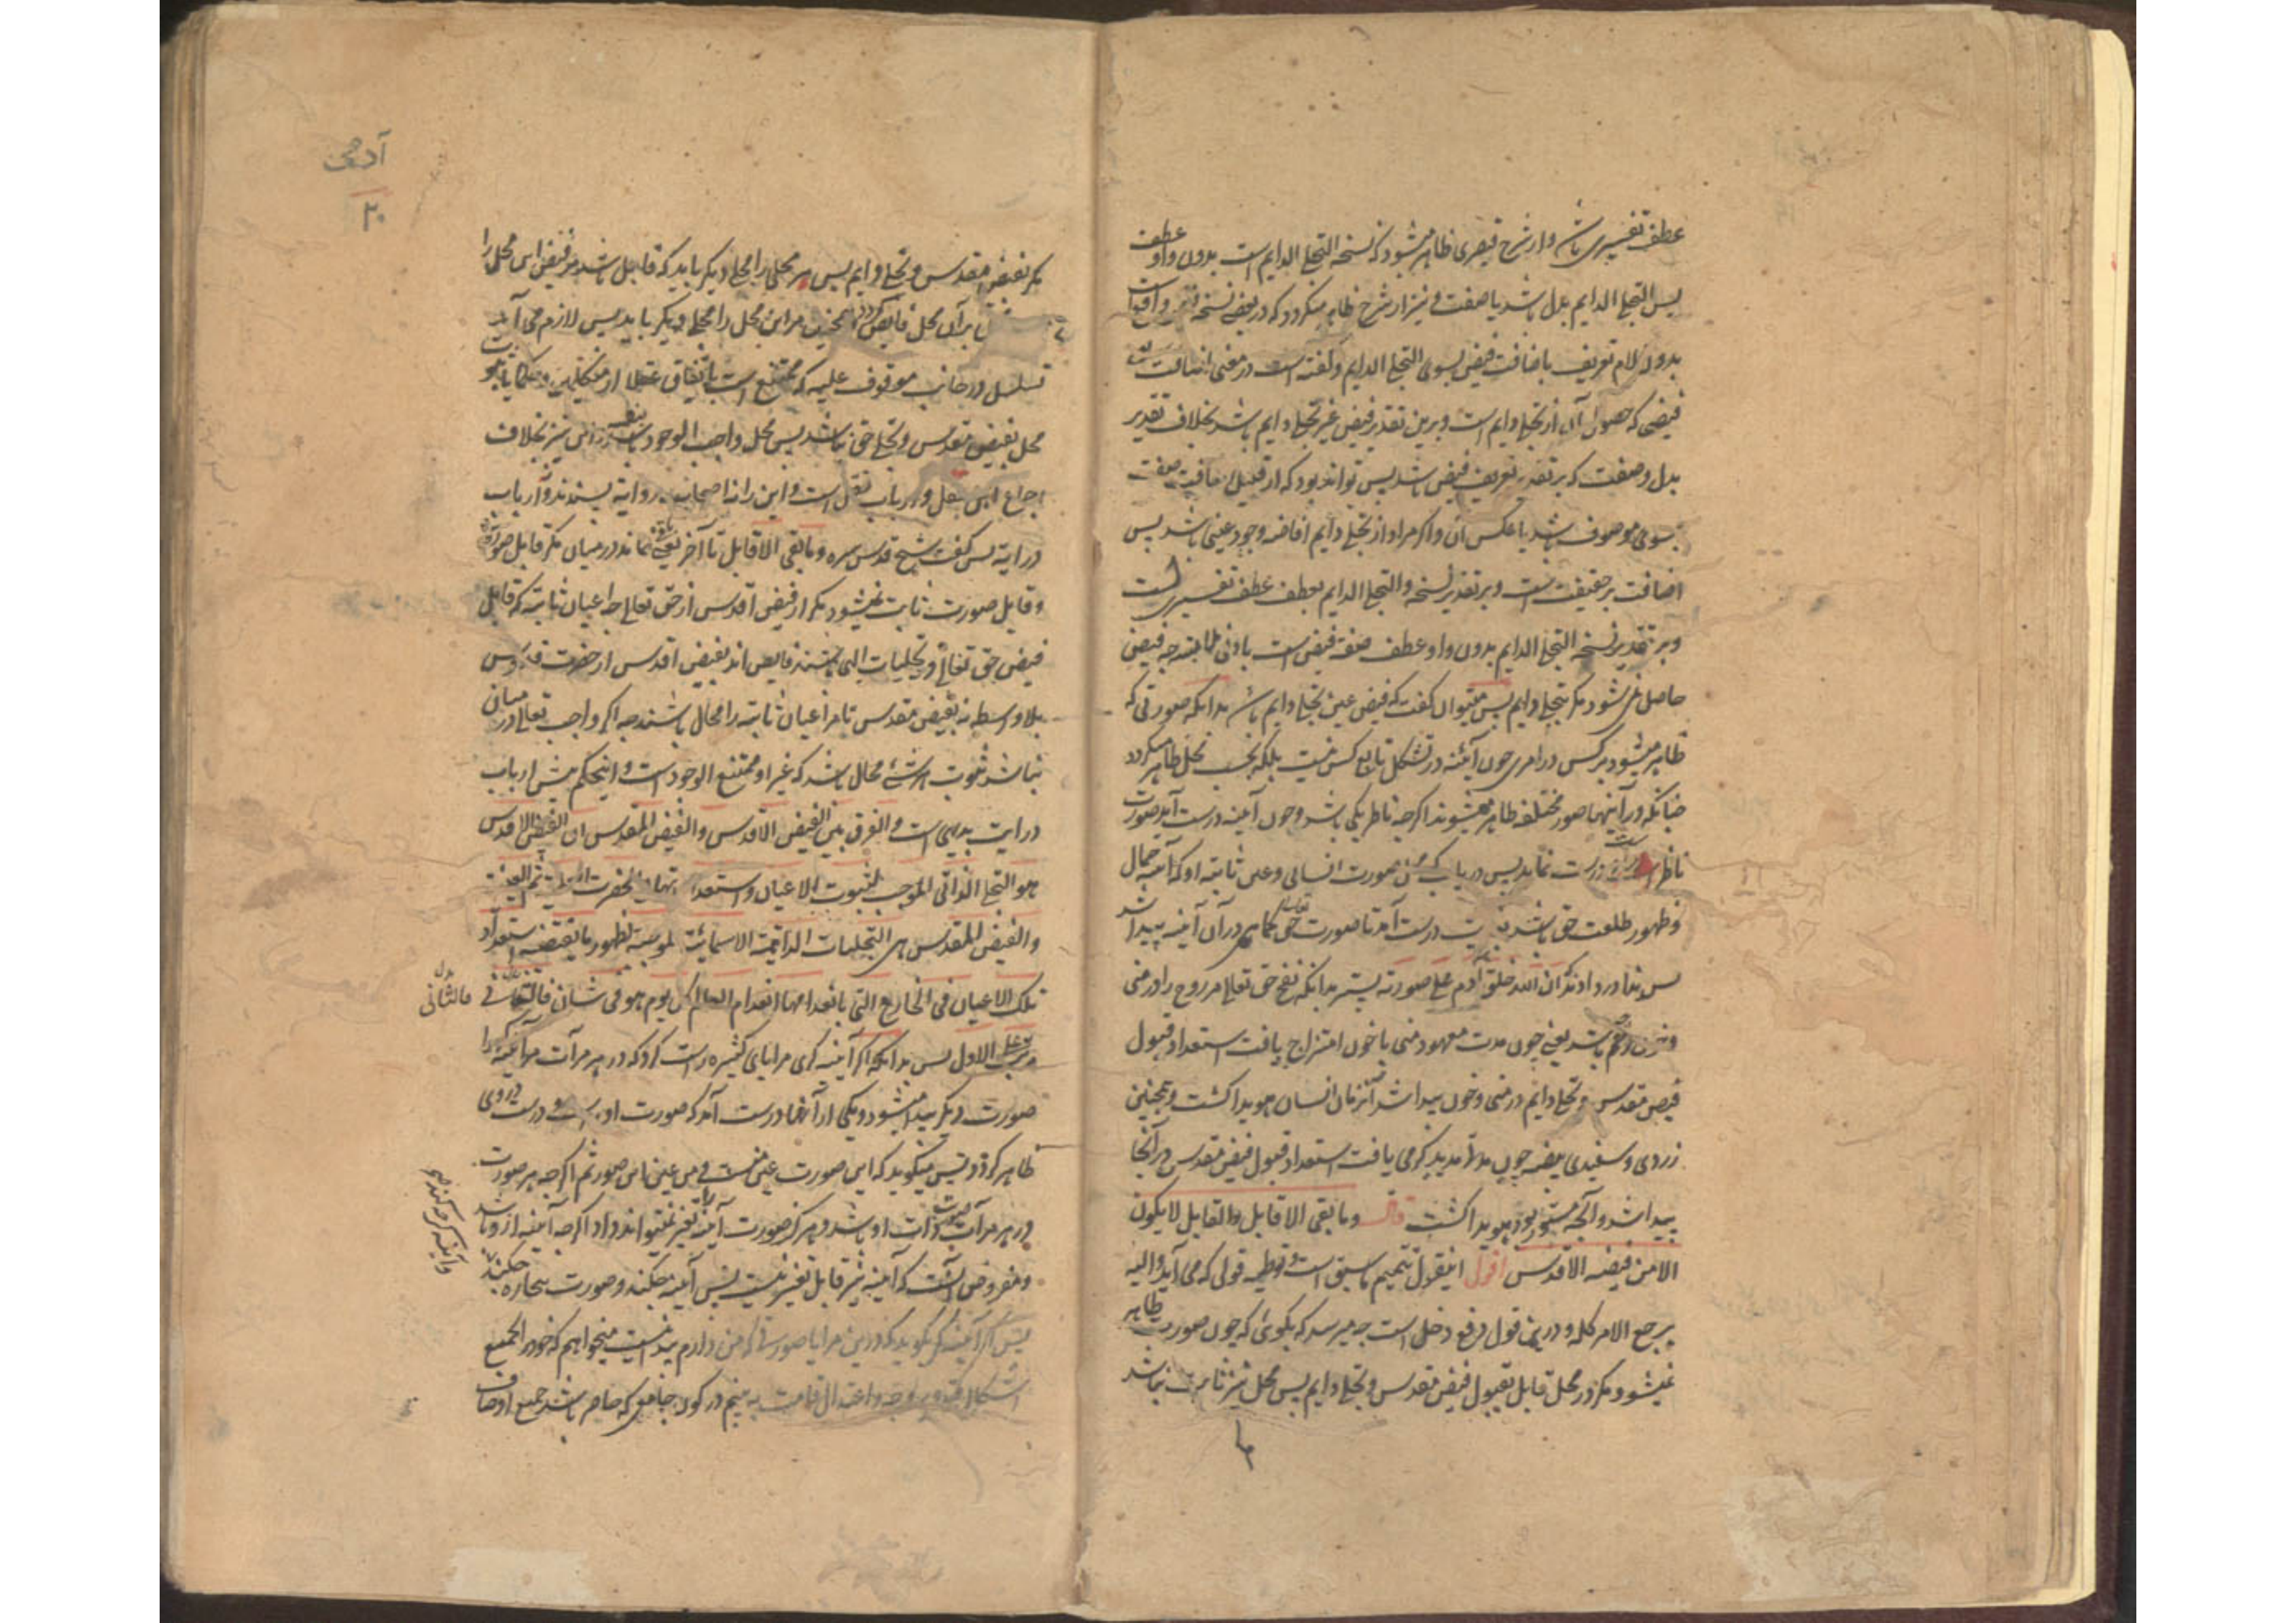 عطف تفسیری باشد و از شرح قیصری ظاهر میشود که نسخه التجلی الدایم است بدون واو عطف
پس التجلی الدایم بدل باشد یا صفت و نیز از شرح ظاهر میگردد که در بعضی نسخه
بدون لام تعریف باضافت فیض بسوی التجلی الدایم و گفته است در معنی اضافت
فیضی که حصول آن از تجلی دایم است و برین تقدیر فیض غیر تجلی دایم باشد بخلاف تقدیر
بدل و صفت که بر تقدیر تعریف فیض باشد پس تواند بود که از قبیل اضافت صفت
بسوی موصوف باشد یا عکس آن و اگر مراد از تجلی دایم افاضه وجود عینی باشد پس
اضافت بر حقیقت است و بر تقدیر نسخه والتجلی الدایم بعطف عطف تفسیریست
و بر تقدیر نسخه التجلی الدایم بدون واو عطف صفة فیض است بادنی ملابسه چه فیض
حاصل نمی شود مگر بتجلی دایم پس میتوان گفت که فیض عین تجلی دایم باشد بدانکه صورتی که
ظاهر میشود بر کس در امری چون آئنه در تشکل تابع کس نیست بلکه بحسب محل ظاهر میگردد
چنانکه در آینها صور مختلفه ظاهر میشوند اگرچه ناظر یکی باشد و چون آینه درست آید صورت
ناظر درست نماید پس دریاب که صورت انسانی و عین ثابته او که آینه جمال
و ظهور طلعت حق باشد درست آمد تا صورت حق کماهی در آن آینه پیدا شد
پس ندا در دادند که ان الله خلق آدم علی صورته پستر بدانکه نفخ حق تعالی مر روح را در منی
و خون باشد یعنی چون مدت معهود منی با خون امتزاج یافت استعداد قبول
فیض مقدس و تجلی دایم در منی و خون پیدا شد آنزمان انسان هویدا گشت و همچنین
زردی و سفیدی بیضه چون مدة مدید گرمی یافت استعداد قبول فیض مقدس در آنجا
پیدا شد و آنچه مستور بود هویدا گشت قال وما بقی الا قابل والقابل لا یکون
الا من فیضه الاقدس اقول اینقول تتمیم ما سبق است و توطیه قولی که می آید والیه
یرجع الامر کله و درین قول دفع دخل است چه میرسد که بگوئی که چون صورت ظاهر
نمیشود مگر در محل قابل بقبول فیض مقدس و تجلی دایم پس محل نیز ثابت نباشد
ما
آدمی
۲۰
مگر بفیض مقدس و تجلی دایم پس هر محلی را محلی دیگر باید که قابل باشد مر فیض این محل را
بر آن محل فایض گردد همچنین مر این محل را محلی دیگر باید پس لازم می آید
تسلسل در جانب موقوف علیه که ممتنع است باتفاق عقلا از متکلمین و حکما
محل بفیض مقدس و تجلی حق نباشد پس محل واجب الوجود باشد و این نیز بخلاف
اجماع اهل عقل و ارباب نقل است و این را نه اصحاب روایة پسندند و نه ارباب
درایة پس گفت شیخ قدس سره وما بقی الا قابل تا آخر یعنی نماند در میان مگر قابل صورة
و قابل صورت ثابت نمیشود مگر از فیض اقدس از حق تعالی چه اعیان ثابته که قابل
فیض حق تعالی و تجلیات الهی هستند فایض اند بفیض اقدس از حضرت قدوس
بلا واسطه نه بفیض مقدس تا مر اعیان ثابته را محال باشند چه اگر واجب تعالی در میان
نباشد ثبوت هر شئ محال باشد که غیر او ممتنع الوجود است و اینحکم پیش ارباب
درایت بدیهی است والفرق بین الفیض الاقدس والفیض المقدس ان الفیض الاقدس
هو التجلی الذاتی الموجب لثبوت الاعیان و استعداداتها فی الحضرت العلمیة ثم العینیة
والفیض المقدس هی التجلیات الدائمیة الاسمائیة الموجبة لظهور ما یقتضیه استعداد
تلک الاعیان فی الخارج التی بانعدامها انعدام العالم کل یوم هو فی شان فالتجلی الثانی
فالثانی
مرتب علی الاول پس بدانکه اگر آئینه گری مرایای کثیره راست کرد که در هر مرآت مر آئینه گر را
صورت دیگر پیدا میشود و یکی از آنها درست آمد که صورت او براستی و درستی در وی
ظاهر کرد پس میگوید که این صورت عین منست و من عین این صورتم اگرچه هر صورت
در هر مرآت صورت ذات او باشد و هرگز صورت آینه را تغیر نمیتواند داد اگرچه آینه از و باشد
و مفروض آنست که آینه نیز قابل تغیر نیست پس آینه چکند و صورت بیچاره چکند
و آینه گر چکند
پس اگر آینه گر بگوید که درین مرایا صورتی که من دارم پیدا نیست میخواهم که خود را بجمیع
اشکال قد و رو و چه و اعتدال قامت به بینم در کون جامعی که حاصر باشد جمیع اوصاف